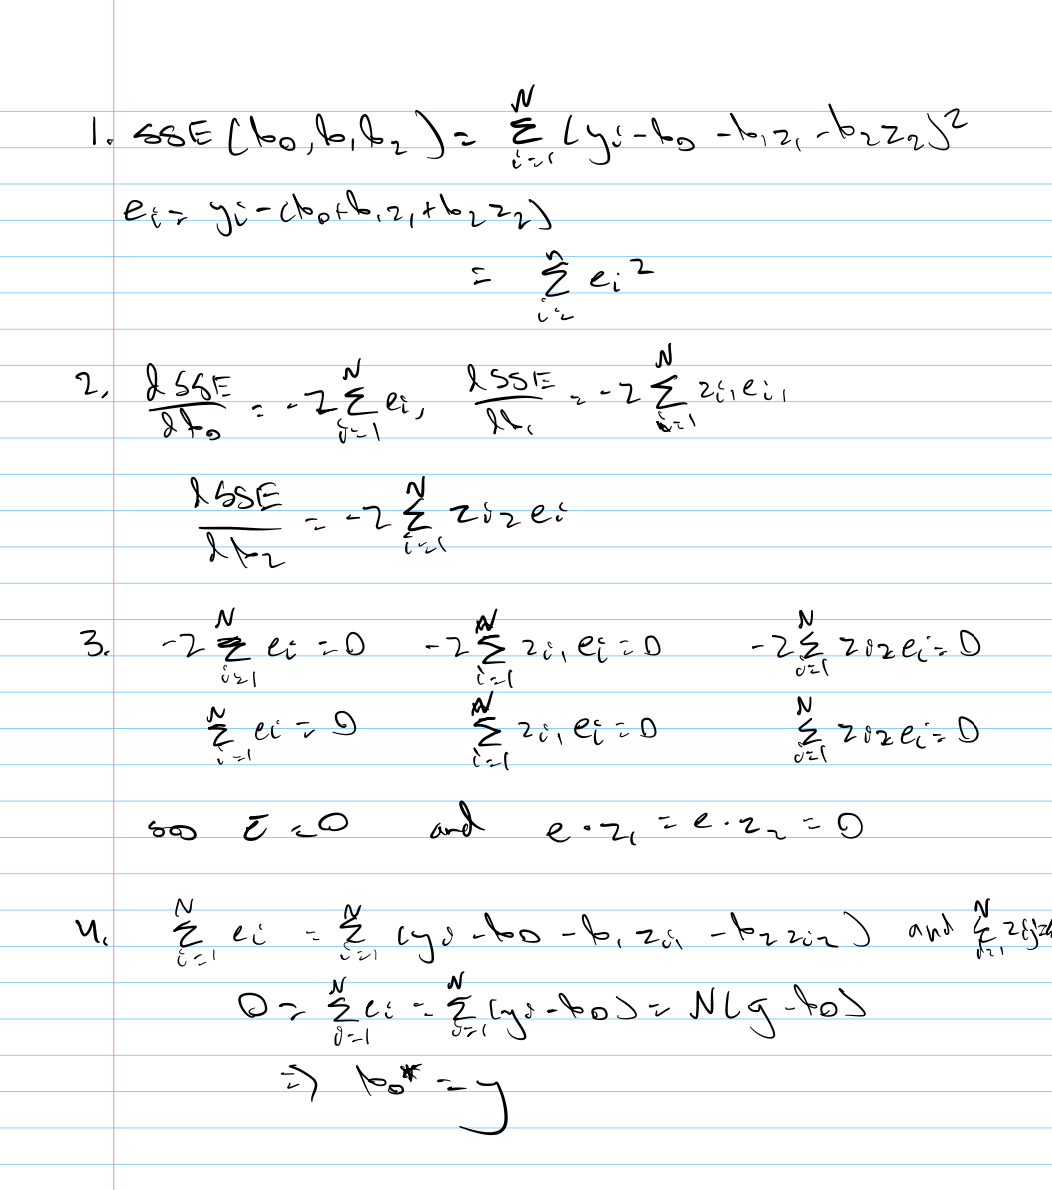 1. SSE(b₀, b₁, b₂) = Σ_{i=1}^{N} (yᵢ - b₀ - b₁z₁ - b₂z₂)²
eᵢ = yᵢ - (b₀ + b₁z₁ + b₂z₂)
= Σ_{i=}^{n} eᵢ²
2. dSSE/db₀ = -2 Σ_{i=1}^{N} eᵢ, dSSE/db₁ = -2 Σ_{i=1}^{N} zᵢ₁eᵢ,
dSSE/db₂ = -2 Σ_{i=1}^{N} zᵢ₂eᵢ
3. -2 Σ_{i=1}^{N} eᵢ = 0 -2 Σ_{i=1}^{N} zᵢ₁eᵢ = 0 -2 Σ_{i=1}^{N} zᵢ₂eᵢ = 0
Σ_{i=1}^{N} eᵢ = 0 Σ_{i=1}^{N} zᵢ₁eᵢ = 0 Σ_{i=1}^{N} zᵢ₂eᵢ = 0
so ē = 0 and e · z₁ = e · z₂ = 0
4. Σ_{i=1}^{N} eᵢ = Σ_{i=1}^{N} (yᵢ - b₀ - b₁zᵢ₁ - b₂zᵢ₂) and Σ_{i=1}^{N} zᵢⱼ =
0 = Σ_{i=1}^{N} eᵢ = Σ_{i=1}^{N} (yᵢ - b₀) = N(y - b₀)
⇒ b₀* = y